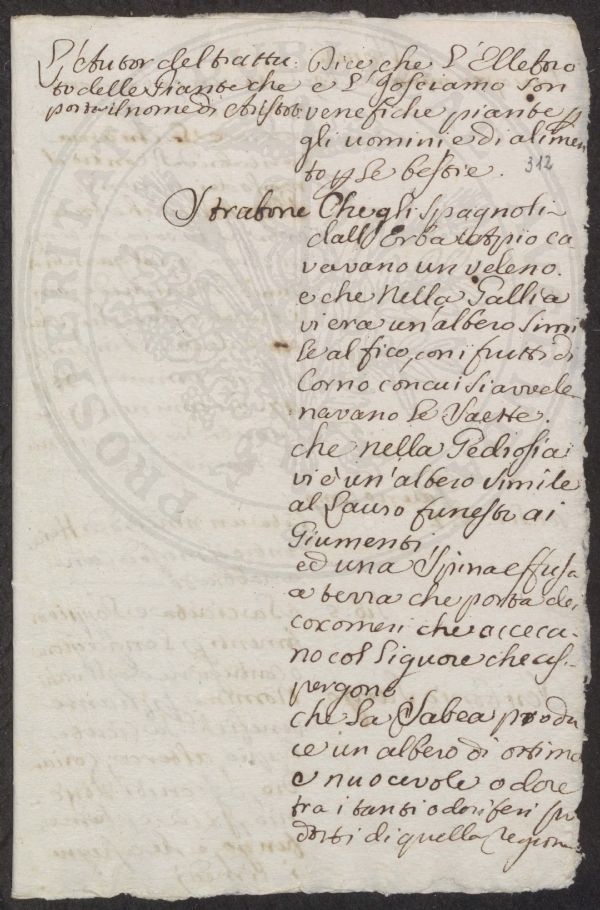 L'Autor del trattu: Dice che L'Elleboro
to delle Piante che e L'Josciamo son
porta il nome di Aristot: venefiche piante p
gli uomini e di alimen
to p Le bestie.
312
Strabone Che gli Spagnoli
dall'Erba Appio ca
vavano un veleno.
e che Nella Gallia
vi era un'albero Simi
le al fico, con i frutti di
Corno con cui Si avvele
navano Le Saette.
che nella Gedrosia
vi è un'albero Simile
al Lauro funesto ai
Giumenti
ed una Spina effusa
a terra che porta dei
cocomeri che acceca-
no col Liquore che as-
pergono
che La Sabea produ
ce un albero di ottimo
e nuocevole odore
tra i tanti odoriferi pro
dotti di quella Regione
PROSPERITA